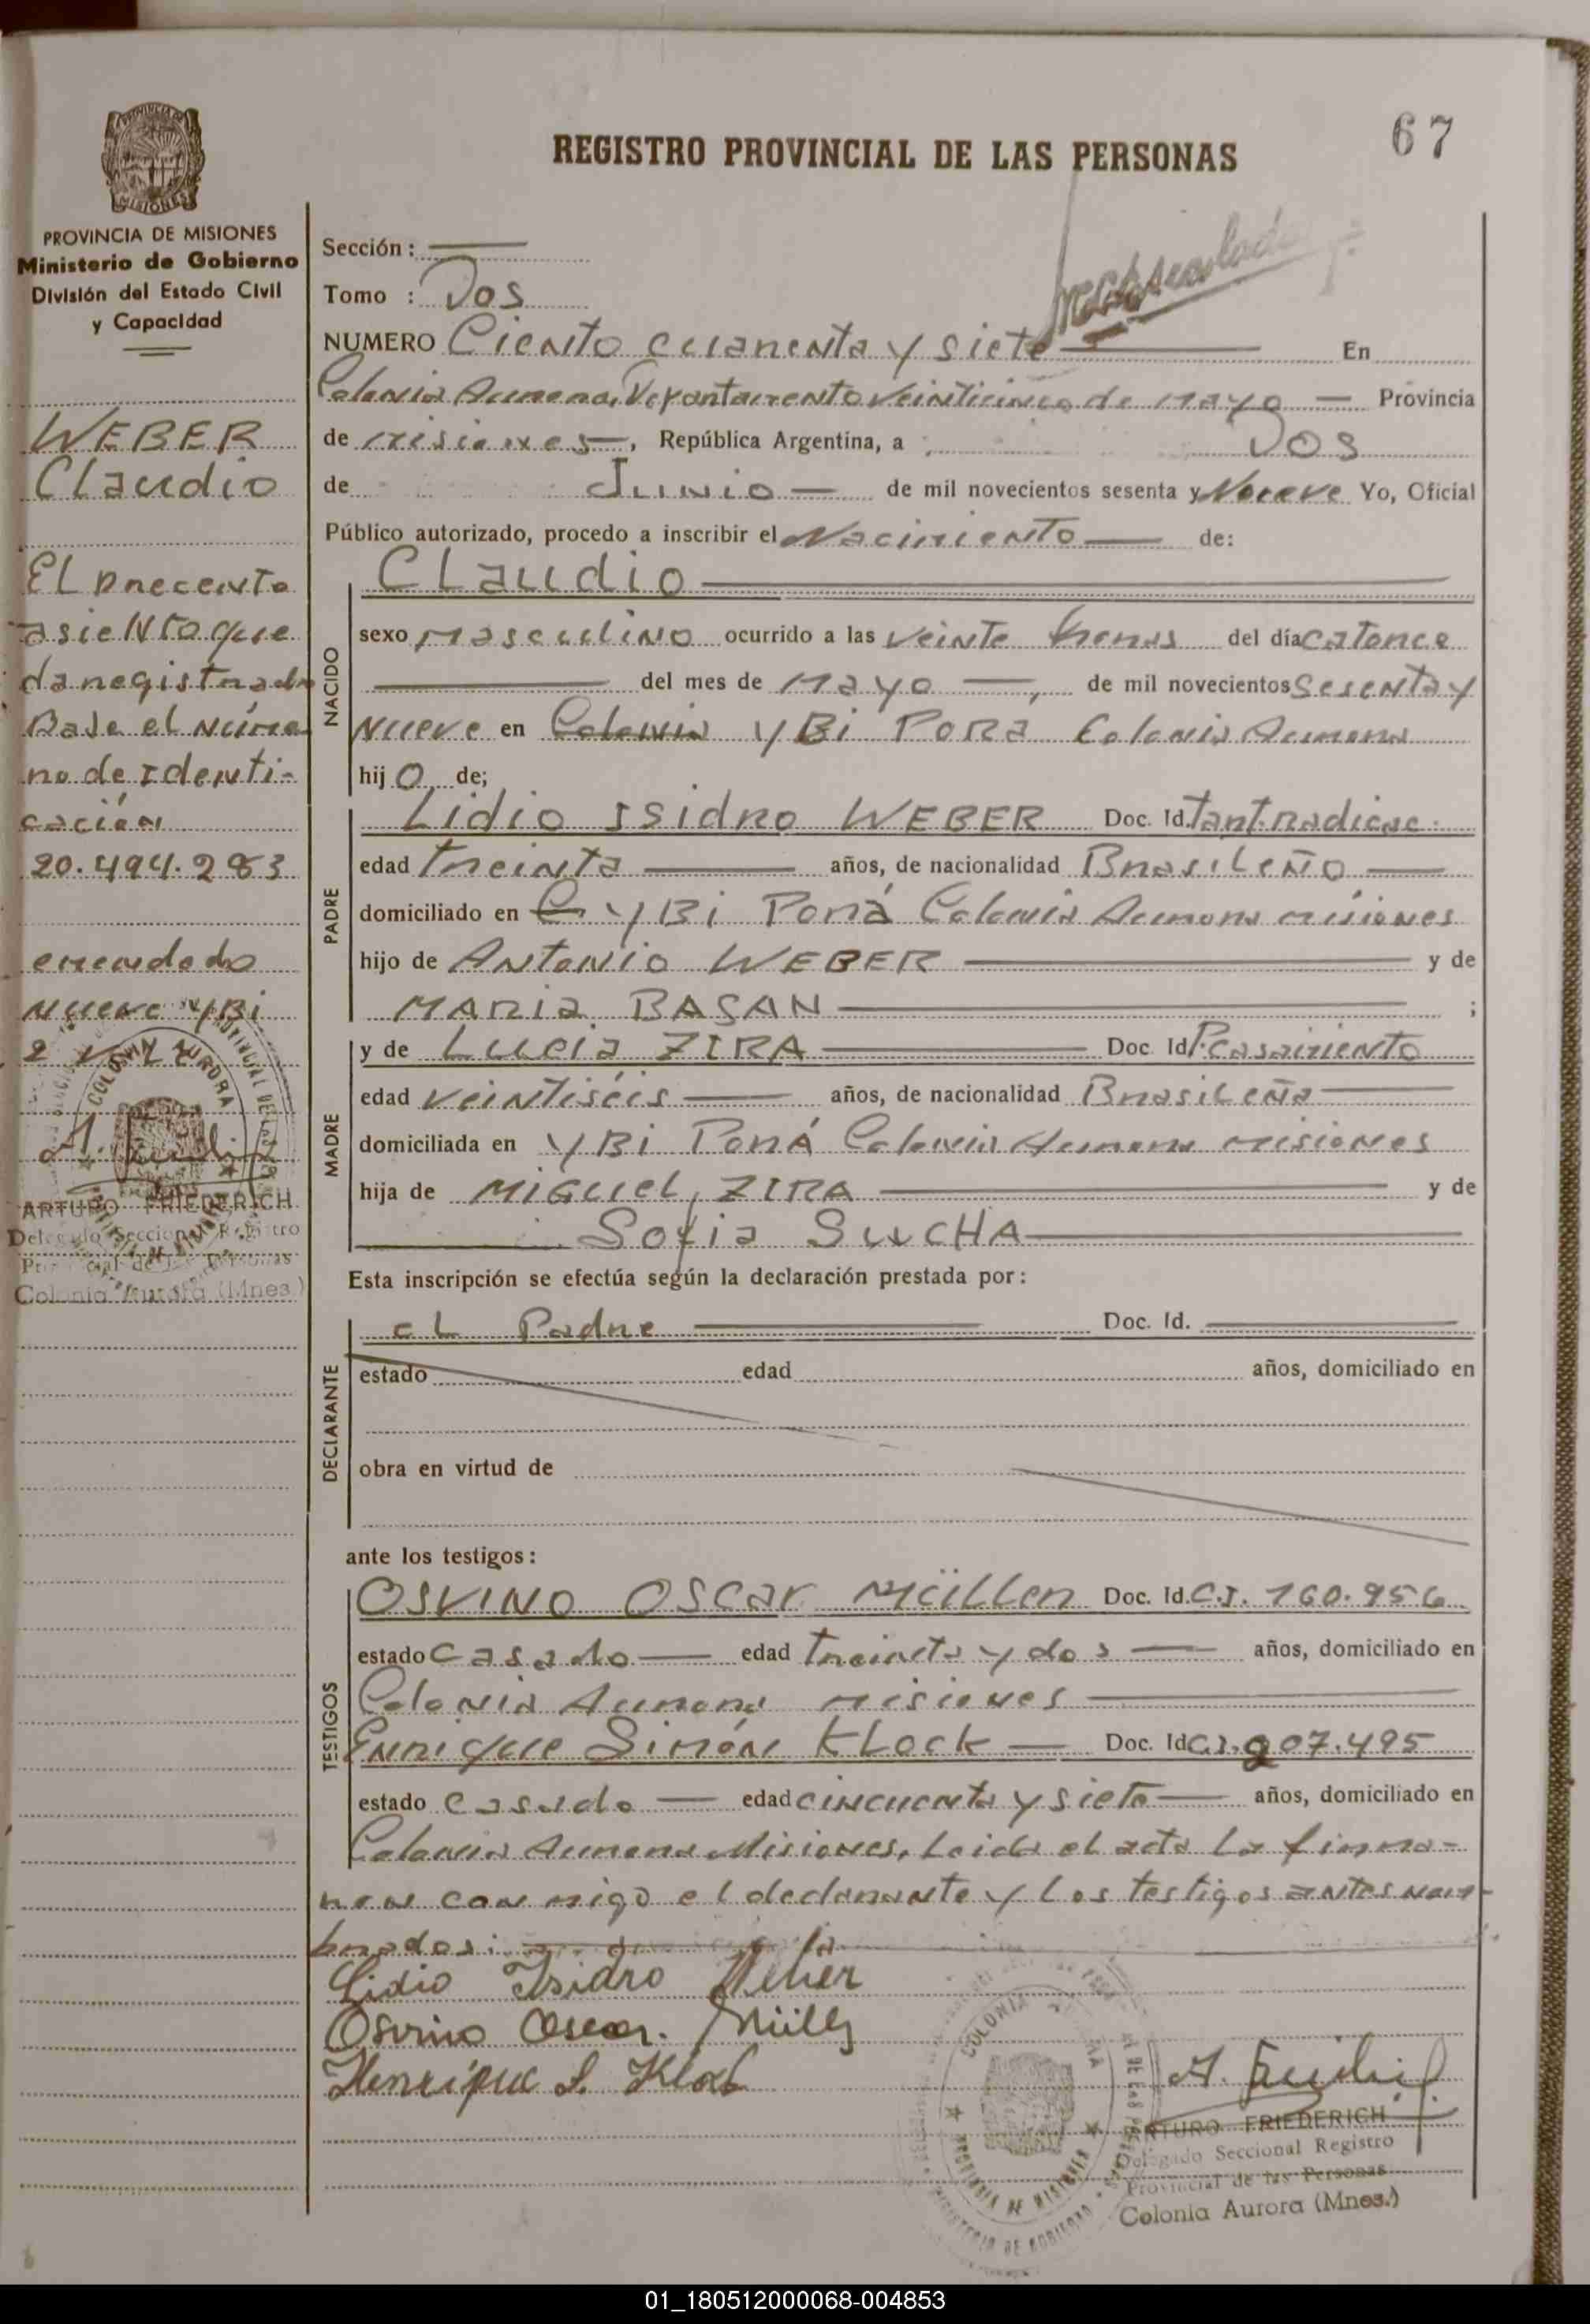 67
REGISTRO PROVINCIAL DE LAS PERSONAS
MISIONES
PROVINCIA DE MISIONES
Ministerio de Gobierno
División del Estado Civil
y Capacidad
WEBER
Claudio
El precente
asiento que
da registrado
Baje el núme
ro de Identi-
cación
20.494.283
enendado
nueve yBi
COLONIA AURORA
ARTURO FRIEDERICH
Delegado Seccional Registro
Provincial de las Personas
Colonia Aurora (Mnes.)
Sección :
Tomo : Dos
NUMERO Ciento cuarenta y siete En
Colonia Aurora, Departamento Veinticinco de Mayo Provincia
de misiones, República Argentina, a Dos
de Junio de mil novecientos sesenta y Nueve Yo, Oficial
Público autorizado, procedo a inscribir el Nacimiento de:
NACIDO
Claudio
sexo Masculino ocurrido a las veinte horas del día catorce
del mes de Mayo, de mil novecientos sesenta y
Nueve en Colonia yBi Pora Colonia Aurora
hij o de;
PADRE
Lidio Isidro WEBER Doc. Id. Tant. radicac.
edad treinta años, de nacionalidad Brasileño
domiciliado en yBi Porá Colonia Aurora misiones
hijo de Antonio WEBER y de
Maria BASAN ;
MADRE
y de Lucia ZIRA Doc. Id P. Casamiento
edad veintiséis años, de nacionalidad Brasileña
domiciliada en yBi Porá Colonia Aurora misiones
hija de Miguel ZIRA y de
Sofia SuCHA
Esta inscripción se efectúa según la declaración prestada por :
DECLARANTE
el Padre Doc. Id.
estado edad años, domiciliado en
obra en virtud de
ante los testigos :
TESTIGOS
OSVINO OSCar Müller Doc. Id. C.I. 160.956
estado casado edad treinta y dos años, domiciliado en
Colonia Aurora misiones
Enrique Simón Klock Doc. Id C.I. 207.495
estado casado edad cincuenta y siete años, domiciliado en
Colonia Aurora Misiones. Leida el acta la firma-
ron con migo el declarante y los testigos antes nom-
brados:
Lidio Isidro Weber
Osvino Oscar. Müller
Henrique S. Klock
COLONIA
PROVINCIA DE MISIONES
MINISTERIO DE GOBIERNO
A. Friederich
ARTURO FRIEDERICH
Delegado Seccional Registro
Provincial de las Personas
Colonia Aurora (Mnes.)
01_180512000068-004853